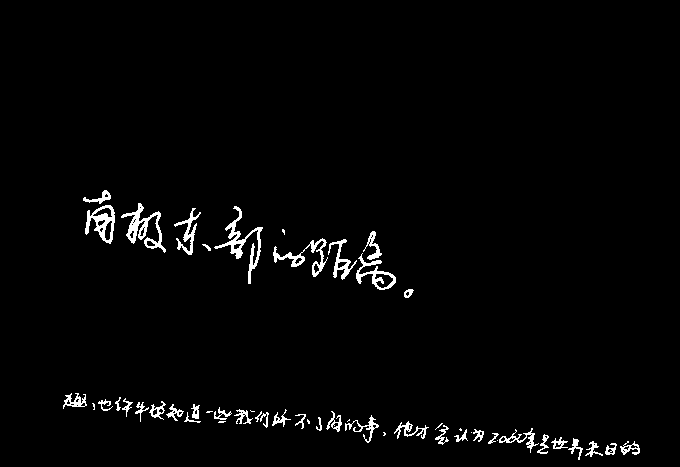 南极东部的距离。
题,也许牛顿知道一些我们所不了解的事,他才会认为2060年是世界末日的